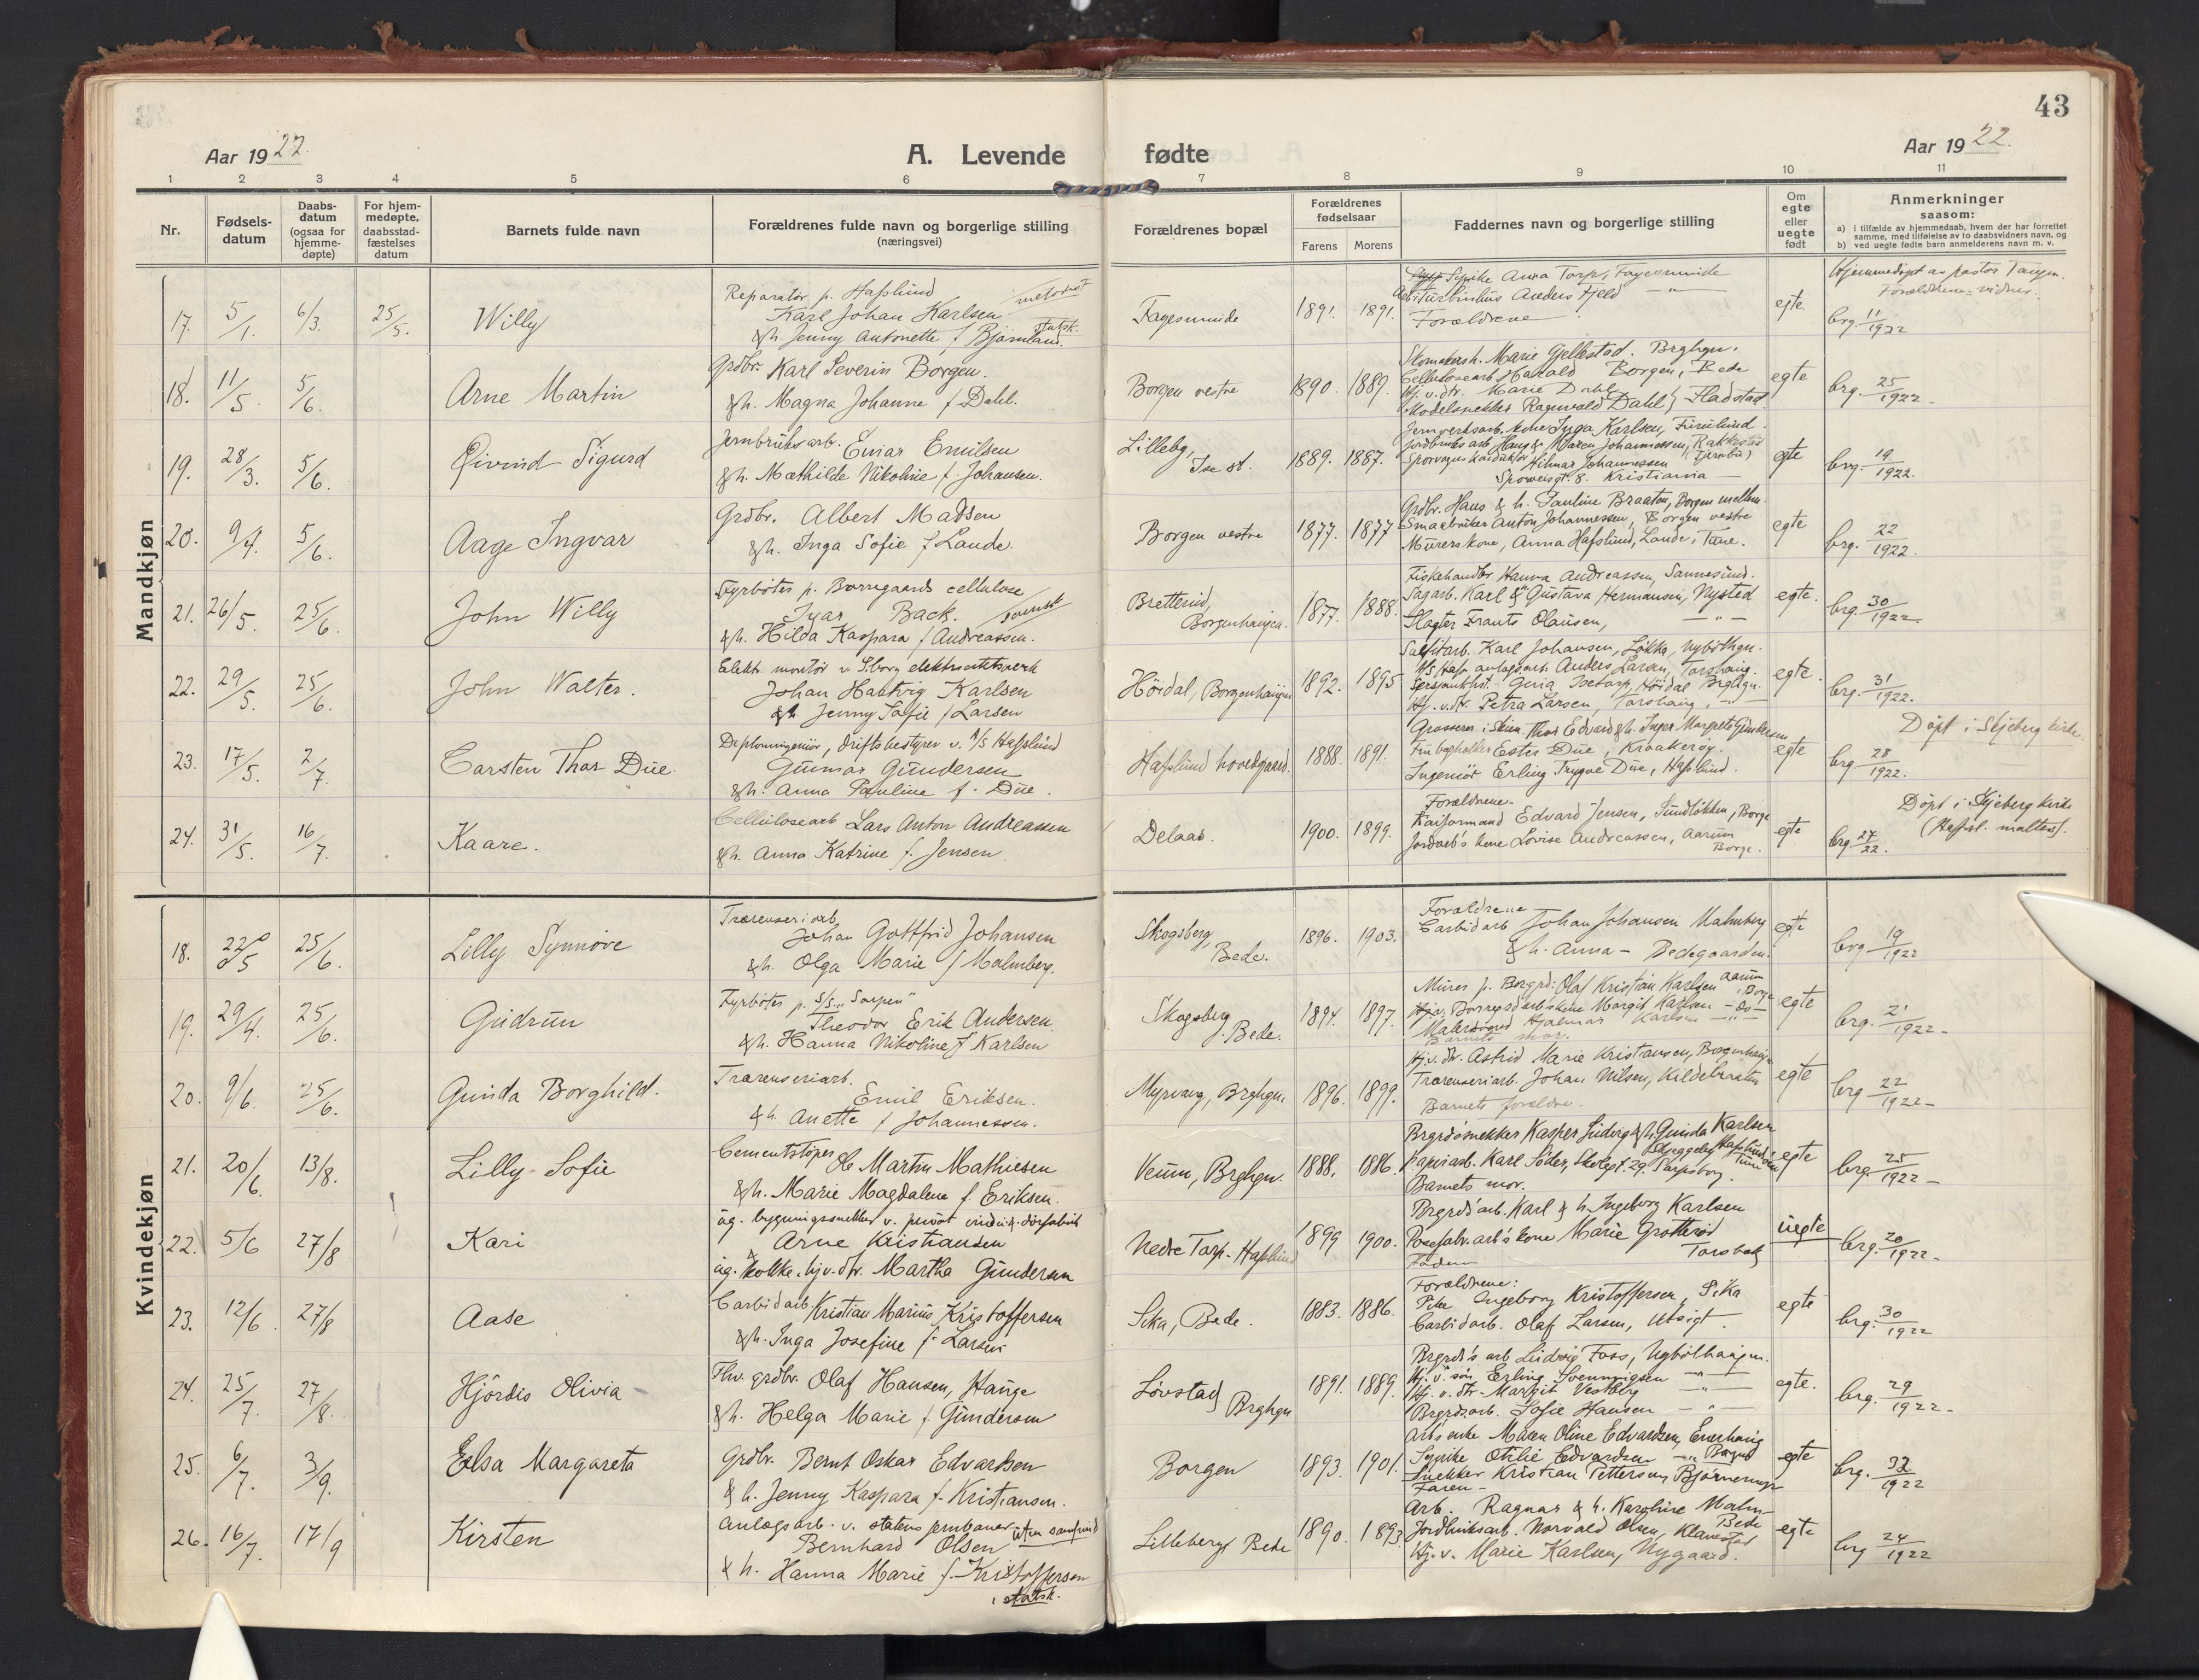 43
Aar 1922.
A. Levende fødte
Aar 1922.
1 2 3 4 5 6 7 8 9 10 11
Nr.
Fødsels-
datum
Daabs-
datum
(ogsaa for
hjemme-
døpte)
For hjem-
medøpte,
daabsstad-
fæstelses
datum
Barnets fulde navn
Forældrenes fulde navn og borgerlige stilling
(næringsvei)
Forældrenes bopæl
Forældrenes
fødselsaar
Farens Morens
Faddernes navn og borgerlige stilling
Om
egte
eller
uegte
født
Anmerkninger
saasom:
a) i tilfælde av hjemmedaab, hvem der har forrettet
samme, med tilføielse av to daabsvidners navn, og
b) ved uegte fødte barn anmelderens navn m. v.
Mandkjøn
17. 5/1. 6/3. 25/5. Willy
Reparatør p. Hafslund
Karl Johan Karlsen metodist
& h. Jenny Antonette f. Bjørnland. statsk.
Fagesunde 1891. 1891.
Anna Torp, Fagesunde
Anders Fjeld — " —
Forældrene
egte
Hjemmedøpt av pastor Tangen.
Forældrene = vidner.
brg. 11/1922
18. 11/5. 5/6. Arne Martin
Grdbr. Karl Severin Borgen.
& h. Magna Johanne f. Dahl.
Borgen vestre 1890. 1889.
Skomakersh. Marie Gjellestad. Brghgn.
Cellulosearb. Harald Borgen, Bede
Hj. v. dtr. Marie Dahl
Modelsnekker Ragnvald Dahl} Fladstad
egte brg. 25/1922 -
19. 28/3. 5/6. Øivind Sigurd
Jernbruksarb. Einar Emilsen
& h. Mathilde Nikoline f. Johansen.
Lilleby, Ise st. 1889. 1887.
Jernverksarb. kone Inga Karlsen, Furulund.
Jordbruks arb. Hans & Maren Johannessen, Rakkestad
Hilmar Johannessen
8. Kristiania
egte brg. 19/1922.
20. 9/4. 5/6. Aage Ingvar
Grdbr. Albert Madsen
& h. Inga Sofie f. Lande.
Borgen vestre 1877. 1877
Grdbr. Hans & h. Pauline Braaten, Borgen mellem.
Smaabruker Anton Johannessen, Borgen vestre
Murerskone, Anna Hafslund, Lande, Tune.
egte brg. 22/1922.
21. 26/5. 25/6. John Willy
Fyrbøter p. Borregaards cellulose
Ivar Back. svensk
& h. Hilda Kaspara f. Andreassen.
Bretterud, Borgenhaugen. 1877. 1888.
Fiskehandler Hanna Andreassen, Sannesund.
Sagarb. Karl & Gustava Hermansen, Nysted
Slagter Frants Olausen, — " —
egte. brg. 30/1922
22. 29/5. 25/6. John Walter.
Elekt. montør v. S.borg elektricitetsverk
Johan Hartvig Karlsen
& h. Jenny Sofie f. Larsen
Høidal, Borgenhaugen 1892. 1895
Sulfitarb. Karl Johansen, Løkka, Nybøthgn.
Anders Larsen, Torshaug.
Høidal Brghgn.
Hj. v. dtr. Petra Larsen, Torshaug, — " —
egte. brg. 31/1922.
23. 17/5. 2/7. Carsten Thor Due.
Diplomingeniør, driftsbestyrer v. A/S Hafslund
Gunnar Gundersen
& h. Anna Pauline f. Due.
Hafslund hovedgaard. 1888. 1891.
Grosserer i Skien Thor Edvard & h. Inger Margrete Gundersen
Ester Due, Kraakerøy.
Ingeniør Erling Trygve Due, Hafslund.
egte brg. 28/1922.
Døpt i Skjeberg kirke.
24. 31/5. 16/7. Kaare.
Cellulosearb. Lars Anton Andreassen
& h. Anna Katrine f. Jensen
Delaas. 1900. 1899.
Forældrene.
Kaiformand Edvard Jensen, Sundløkken, Borge
Jordarb's kone Lovise Andreassen, Aarum
Borge.
egte brg. 27/22.
Døpt i Skjeberg kirke
Kvindekjøn
18. 22/5 25/6. Lilly Synnøve
Træranseriarb.
Johan Gottfrid Johansen
& h. Olga Marie f. Malmberg.
Skogsberg, Bede. 1896. 1903.
Forældrene
Carbidarb. Johan Johansen Malmberg
& h. Anna - Bedegaarden.
egte brg 19/1922
19. 29/4. 25/6. Gudrun
Fyrbøter p. S/S. "Sarpen"
Theodor Erik Andersen
& h. Hanna Nikoline f. Karlsen
Skogsberg Bede. 1894. 1897.
Murer p. Borgrd. Olaf Kristian Karlsen Aarum Borge
Margit Karlsen - Do -
Hjalmar Karlsen — " —
Barnets mor.
egte brg. 21/1922 -
20. 9/6. 25/6. Gunda Borghild.
Træranseriarb.
Emil Eriksen.
& h. Anette f. Johannessen.
Myrvang, Brghgn. 1896. 1899.
Hj. v. dtr. Astrid Marie Kristiansen, Borgenhaugen
Træranseriarb. Johan Nilsen, Kildebraaten
Barnets forældre.
egte brg 22/1922 -
21. 20/6. 13/8. Lilly Sofie
Cementstøper Ole Martin Mathiesen
& h. Marie Magdalene f. Eriksen.
Veum, Brghgn. 1888. 1886.
Brgrdssnekker Kasper Ludvig & h. Gunda Karlsen
Papirarb. Karl Söder, Skolegt. 29. Sarpsborg.
Barnets mor.
egte brg. 25/1922 -
22. 5/6 27/8 Kari
ug. bygningssnekker v. privat vindu & dørfabrik
Arne Kristiansen
ug. kokke. hj. v. dtr. Martha Gundersen
Nedre Torp. Hafslund 1899 1900.
Brgrds'arb. Karl & h. Ingeborg Karlsen
Posefabr. arb's kone Marie Grøtterød
Torsbæk
uegte brg. 20/1922 -
23. 12/6 27/8 Aase
Carbidarb. Kristian Marius Kristoffersen
& h. Inga Josefine f. Larsen
Sika, Bede. 1883. 1886.
Forældrene:
Ingeborg Kristoffersen, Sika
Carbidarb. Olaf Larsen, Utsigt.
egte brg. 30/1922
24. 25/7. 27/8. Hjørdis Olivia
Thv. grdbr. Olaf Hansen, Hauge
& h. Helga Marie f. Gundersen
Løvstad, Brghgn 1891. 1889.
Brgrds arb Ludvig Foss, Nybølhaugen.
Hj. v. søn Erling Svenningsen — " —
Hj. v. dtr. Margit Vestberg — " —
Brgrdsarb. Sofie Hansen — " —
egte. brg. 29/1922 -
25. 6/7. 3/9. Elsa Margareta
Grdbr. Bernt Oskar Edvardsen
& h. Jenny Kaspara f. Kristiansen.
Borgen 1893. 1901.
Arb's enke Maren Oline Edvardsen, Enerhaug
Otilie Edvardsen — " —
Snekker Kristian Pettersen,
Faren -
egte brg. 32/1922
26. 16/7. 17/9 Kirsten
Anlægsarb. v. statens jernbaner uten samfund
Bernhard Olsen
& h. Hanna Marie f. Kristoffersen
statsk.
Lilleberg, Bede 1890. 1893
Arb. Ragnar & h. Karoline Malm
Bede
Jordbruksarb. Norvald Olsen, Klavestad
Hj. v. Marie Karlsen, Nygaard.
egte brg 24/1922